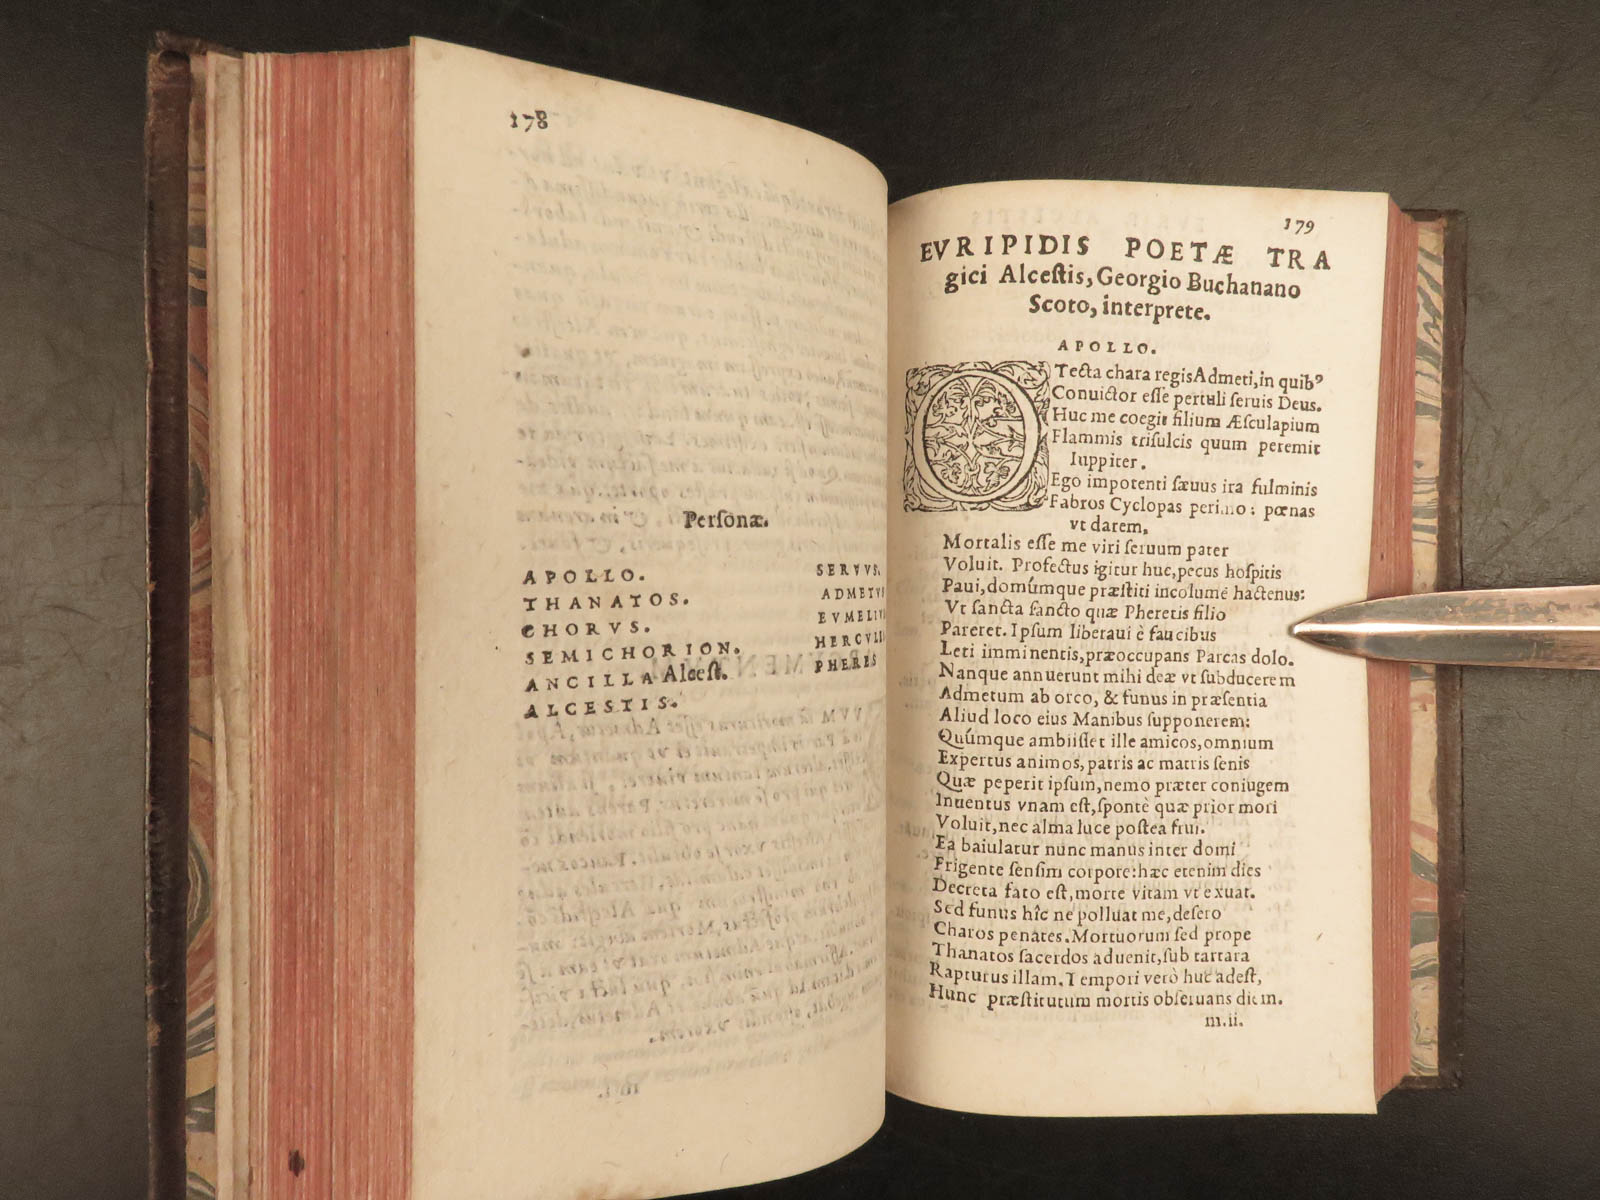 178
Personæ.
APOLLO.
THANATOS.
CHORVS.
SEMICHORION.
ANCILLA Alcest.
ALCESTIS.
SERVVS.
ADMETV
EVMELIV
HERCVLE
PHERES
179
EVRIPIDIS POETÆ TRA
gici Alcestis, Georgio Buchanano
Scoto, interprete.
APOLLO.
O Tecta chara regis Admeti, in quibꝰ
Conuictor esse pertuli seruis Deus.
Huc me coegit filium Æsculapium
Flammis trisulcis quum peremit
Iuppiter.
Ego impotenti sæuus ira fulminis
Fabros Cyclopas perimo: pœnas
vt darem,
Mortalis esse me viri seruum pater
Voluit. Profectus igitur huc, pecus hospitis
Paui, domúmque præstiti incolumē hactenus:
Vt sancta sancto quæ Pheretis filio
Pareret. Ipsum liberaui è faucibus
Leti imminentis, præoccupans Parcas dolo.
Nanque annuerunt mihi deæ vt subducerem
Admetum ab orco, & funus in præsentia
Aliud loco eius Manibus supponerem:
Quúmque ambiisset ille amicos, omnium
Expertus animos, patris ac matris senis
Quæ peperit ipsum, nemo præter coniugem
Inuentus vnam est, spontè quæ prior mori
Voluit, nec alma luce postea frui.
Ea baiulatur nunc manus inter domi
Frigente sensim corpore: hæc etenim dies
Decreta fato est, morte vitam vt exuat.
Sed funus hîc ne polluat me, desero
Charos penates. Mortuorum sed prope
Thanatos sacerdos aduenit, sub tartara
Rapturus illam. Tempori verò huc adest,
Hunc præstitutum mortis obseruans diem.
m.ii.